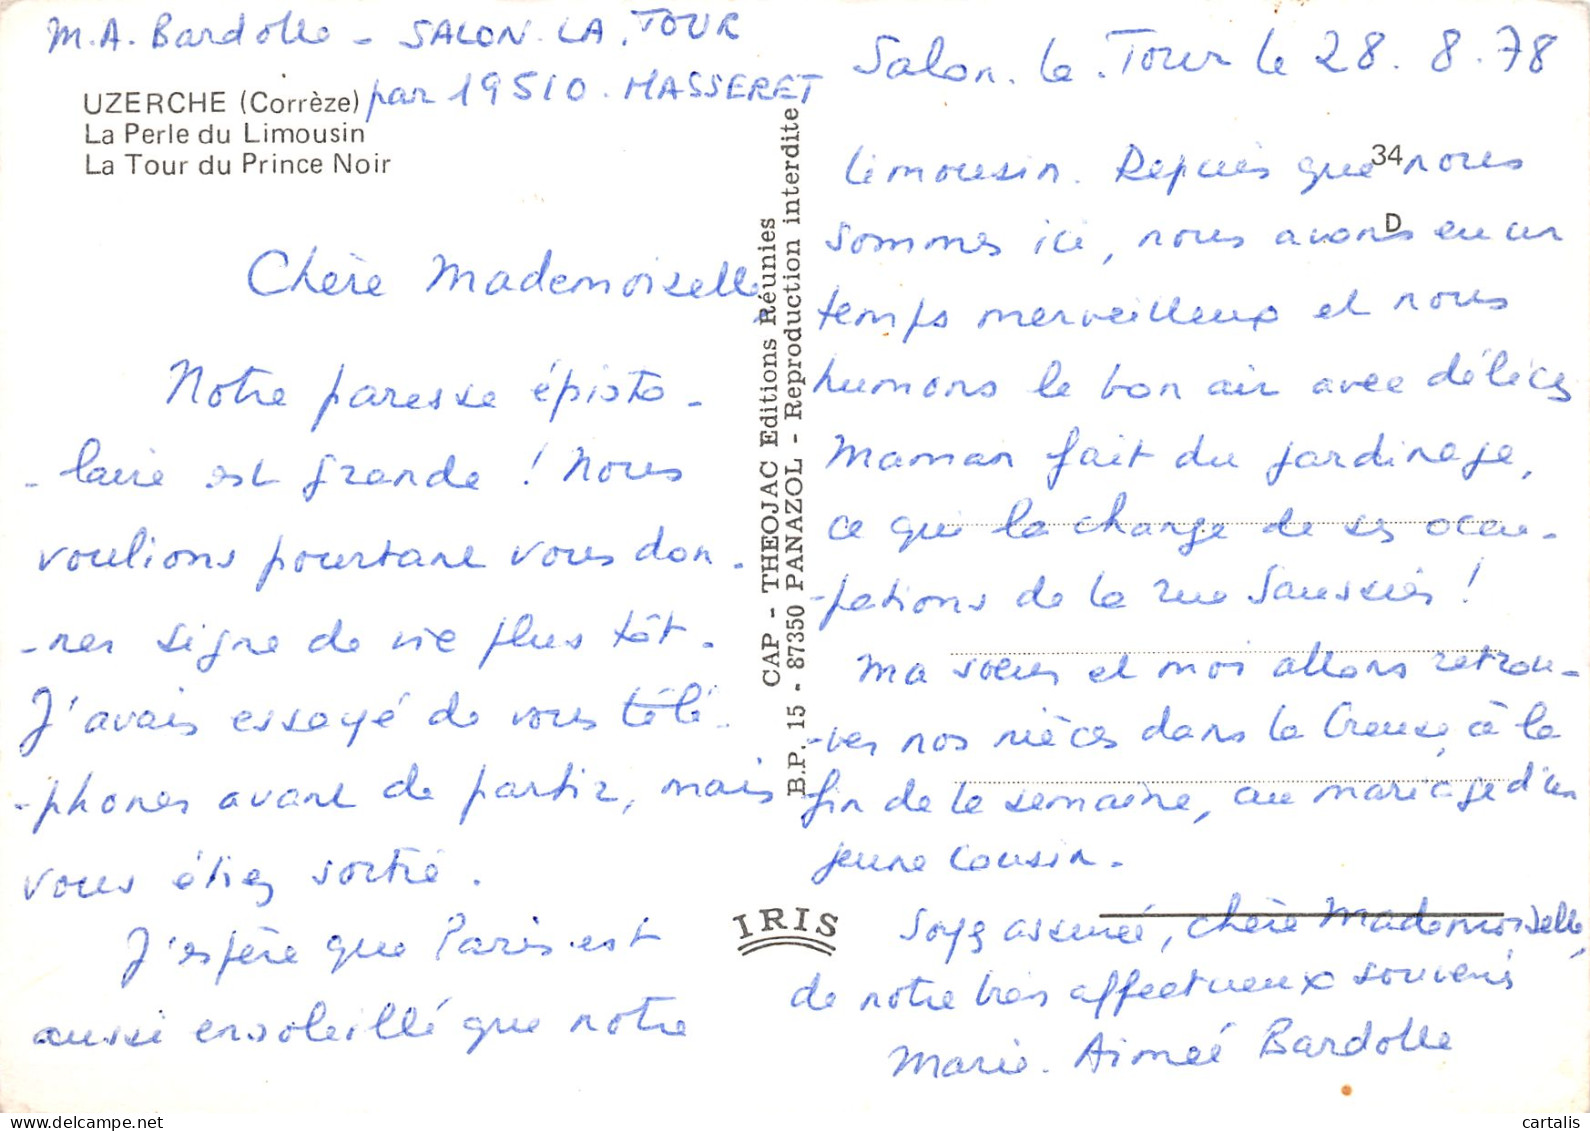 M.A. Bardolle - SALON-LA-TOUR
par 19510. MASSERET
UZERCHE (Corrèze)
La Perle du Limousin
La Tour du Prince Noir
Chère Mademoiselle,
Notre paresse épisto-
-laire est grande ! Nous
voulions pourtant vous don-
-ner signe de vie plus tôt.
J'avais essayé de vous télé-
-phoner avant de partir, mais
vous étiez sortie.
J'espère que Paris est
aussi ensoleillé que notre
CAP - THEOJAC Editions Réunies
B.P. 15 - 87350 PANAZOL - Reproduction interdite
IRIS
Salon. la. Tour le 28. 8. 78
34
D
Limousin. Depuis que nous
sommes ici, nous avons eu un
temps merveilleux et nous
humons le bon air avec délices
Maman fait du jardinage,
ce qui la change de ses occu-
-pations de la rue Saussier !
Ma soeur et moi allons retrou-
-ver nos nièces dans la Creuse, à la
fin de la semaine, au mariage d'un
jeune cousin.
Soyez assurée, chère Mademoiselle,
de notre très affectueux souvenir
Marie-Aimée Bardolle
cartalis
www.delcampe.net